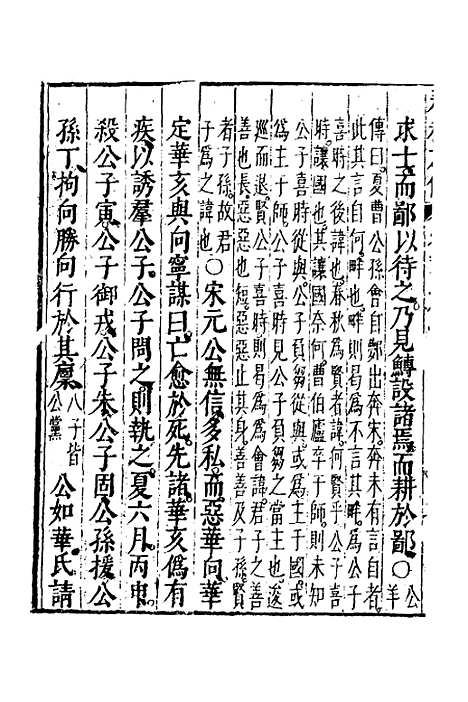 求士而鄙以待之乃見鱄設諸焉而耕於鄙〇公羊
傳曰夏曹公孫會自鄸出奔宋奔未有言自者
此其言自何畔也畔則曷為不言其畔為公子
喜時之後諱也春秋為賢者諱何賢乎公子喜
時讓國也其讓國奈何曹伯廬卒于師則未知
公子喜時從與公子負芻從與或為主于國或
為主于師公子喜時見公子負芻之當主也逡
巡而退賢公子喜時則曷為為會諱君子之善
善也長惡惡也短惡惡止其身善善及子孫賢
者子孫故君子為之諱也〇宋元公無信多私而惡華向華
定華亥與向寧謀曰亡愈於死先諸華亥偽有
疾以誘羣公子公子問之則執之夏六月丙申
殺公子寅公子御戎公子朱公子固公孫援公
孫丁拘向勝向行於其廩八子皆公黨公如華氏請